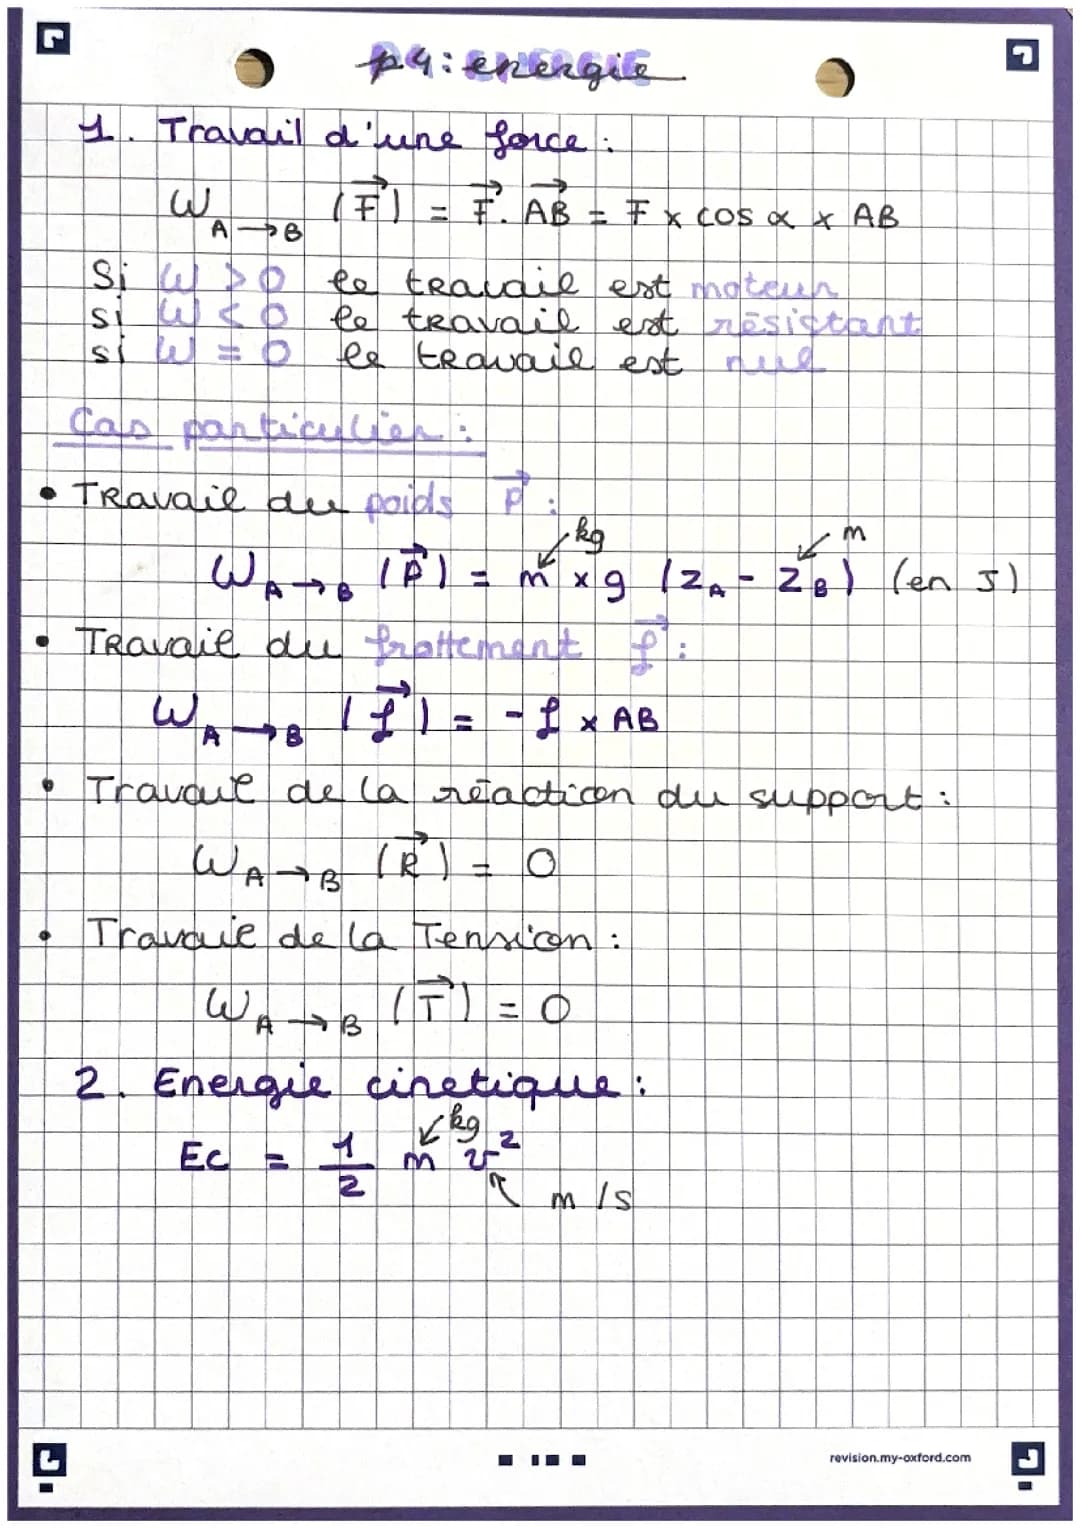 P4: energie
1. Travail d'une force :
W A→B (F⃗) = F⃗ . AB⃗ = F x cos α x AB
Si W > 0 le travail est moteur
si W < 0 le travail est résistant
si W = 0 le travail est nul
Cas particulier :
• Travail du poids P⃗ :
kg m
W A→B (P⃗) = m x g (zA - zB) (en J)
• Travail du frottement f⃗ :
W A→B (f⃗) = - f x AB
• Travail de la réaction du support :
W A→B (R⃗) = 0
• Travail de la Tension :
W A→B (T⃗) = 0
2. Energie cinetique :
kg
Ec = 1/2 m v²
m/s
revision.my-oxford.com